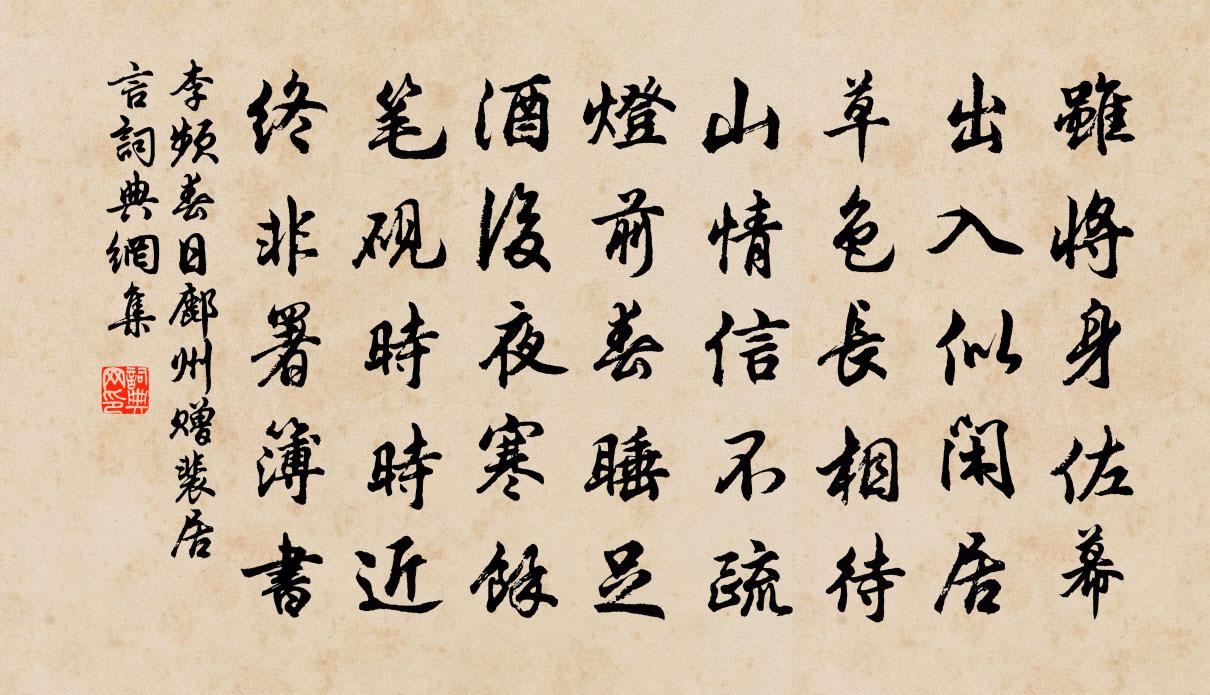 雖將身佐幕
出入似閑居
草色長相待
山情信不疏
燈前春睡足
酒後夜寒餘
笔硯時時近
終非署簿書
李頻春日鄜州贈裴居
言詞典網集
詞典
网印